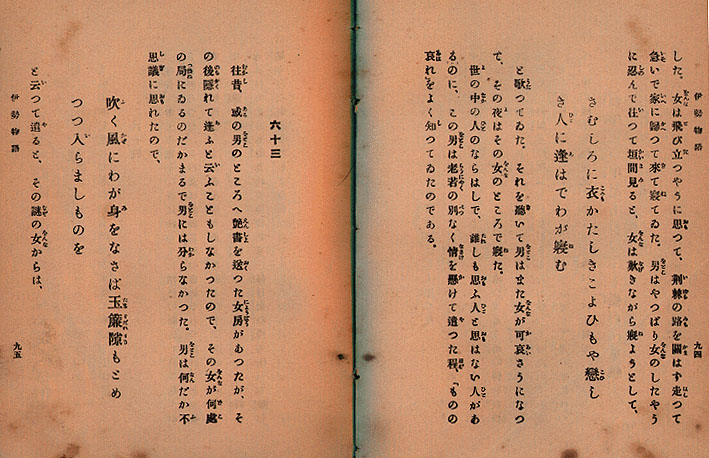 伊勢物語
九四
した。女は飛び立つやうに思つて、荆棘の路を關はず走つて
急いで家に歸つて來て寢てゐた。男はやつぱり女のしたやう
に忍んで往つて垣間見ると、女は歎きながら寢ようとして、
さむしろに衣かたしきこよひもや戀し
き人に逢はでわが寢む
と歌つてゐた。それを聽いて男はまた女が可哀さうになつ
て、その夜はその女のところで寢た。
世の中の人のならはしで、誰しも思ふ人と思はない人があ
るのに、この男は老若の別なく情を懸けて遣つた程、「ものの
哀れをよく知つてゐたのである。
六十三
往昔、或の男のところへ艶書を送つた女房があつたが、そ
の後隱れて逢ふと云ふこともしなかつたので、その女が何處
の局にゐるのだかまるで男には分らなかつた。男は何だか不
思議に思れたので、
吹く風にわが身をなさば玉簾隙もとめ
つつ入らましものを
と云つて遣ると、その謎の女からは、
伊勢物語
九五